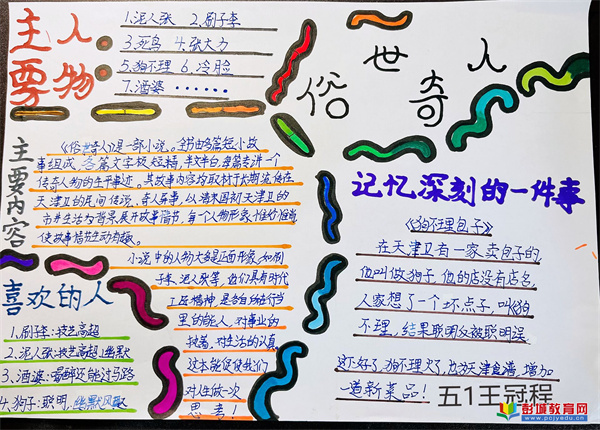 主要人物
1.泥人张 2.刷子李
3.死鸟 4.张大力
5.狗不理 6.冷脸
7.酒婆 ······
俗世奇人
主要内容
《俗世奇人》是一部小说。全书由多篇短小故
事组成,各篇文字极短精,半文半白,每篇专讲一个
传奇人物的生平事迹。其故事内容均取材于长期流传在
天津卫的民间传说,奇人异事,以清末国初天津卫的
市井生活为背景展开故事情节,每个人物形象十分
使故事情节生动有趣。
小说中的人物大多是正面形象,如刷
子李、泥人张等,他们具有时代
工匠精神,是各自所在行当
里的能人,对事业的
执着,对生活的认真
这本能促使我们
对人生做一次
思考!
喜欢的人
1.刷子李:技艺高超
2.泥人张:技艺高超,幽默
3.酒婆:喝醉还能过马路
4.狗子:聪明,幽默风趣
记忆深刻的一件事
《狗不理包子》
在天津卫有一家卖包子的,
他叫做狗子,他的店没有店名,
人家想了一个坏点子,叫狗
不理,结果聪明反被聪明误,
这下好了,狗不理火了,也为天津食满,增加
一道新菜品!
五1王冠程
彭城教育网
www.pcjyedu.cn